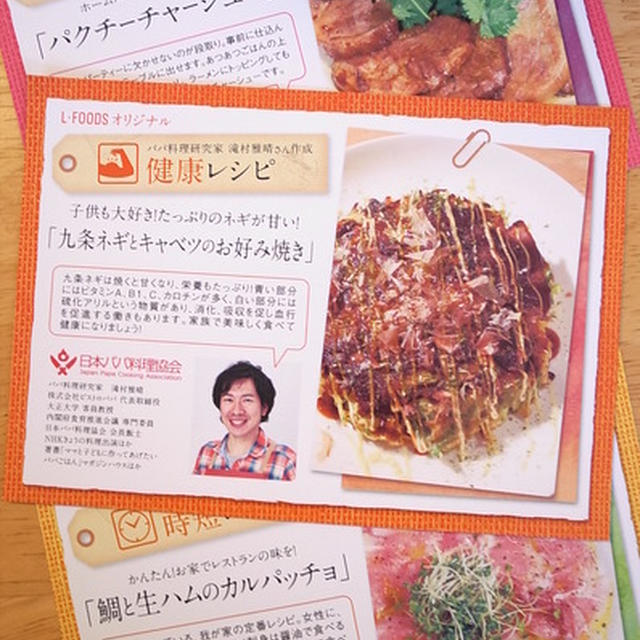 ホーム
「パクチーチャーシュー
パーティーに欠かせないのが段取り。事前に仕込ん
ーブルに出せます。あつあつごはんの上
ラーメンにトッピングしても
チャーシューです。
L・FOODS オリジナル
パパ料理研究家 滝村雅晴さん作成
健康レシピ
子供も大好き!たっぷりのネギが甘い!
「九条ネギとキャベツのお好み焼き」
九条ネギは焼くと甘くなり、栄養もたっぷり!青い部分
にはビタミンA、B1、C、カロチンが多く、白い部分には
硫化アリルという物質があり、消化、吸収を促し血行
を促進する働きもあります。家族で美味しく食べて
健康になりましょう!
日本パパ料理協会
Japan Papa Cooking Association
パパ料理研究家 滝村雅晴
株式会社ビストロパパ 代表取締役
大正大学 客員教授
内閣府食育推進会議 専門委員
日本パパ料理協会 会長飯士
NHKきょうの料理出演ほか
著書「ママと子どもに作ってあげたい
パパごはん」マガジンハウスほか
時短
かんたん!お家でレストランの味を!
「鯛と生ハムのカルパッチョ」
いる、我が家の定番レシピ。女性に、
刺身は醤油で食べる